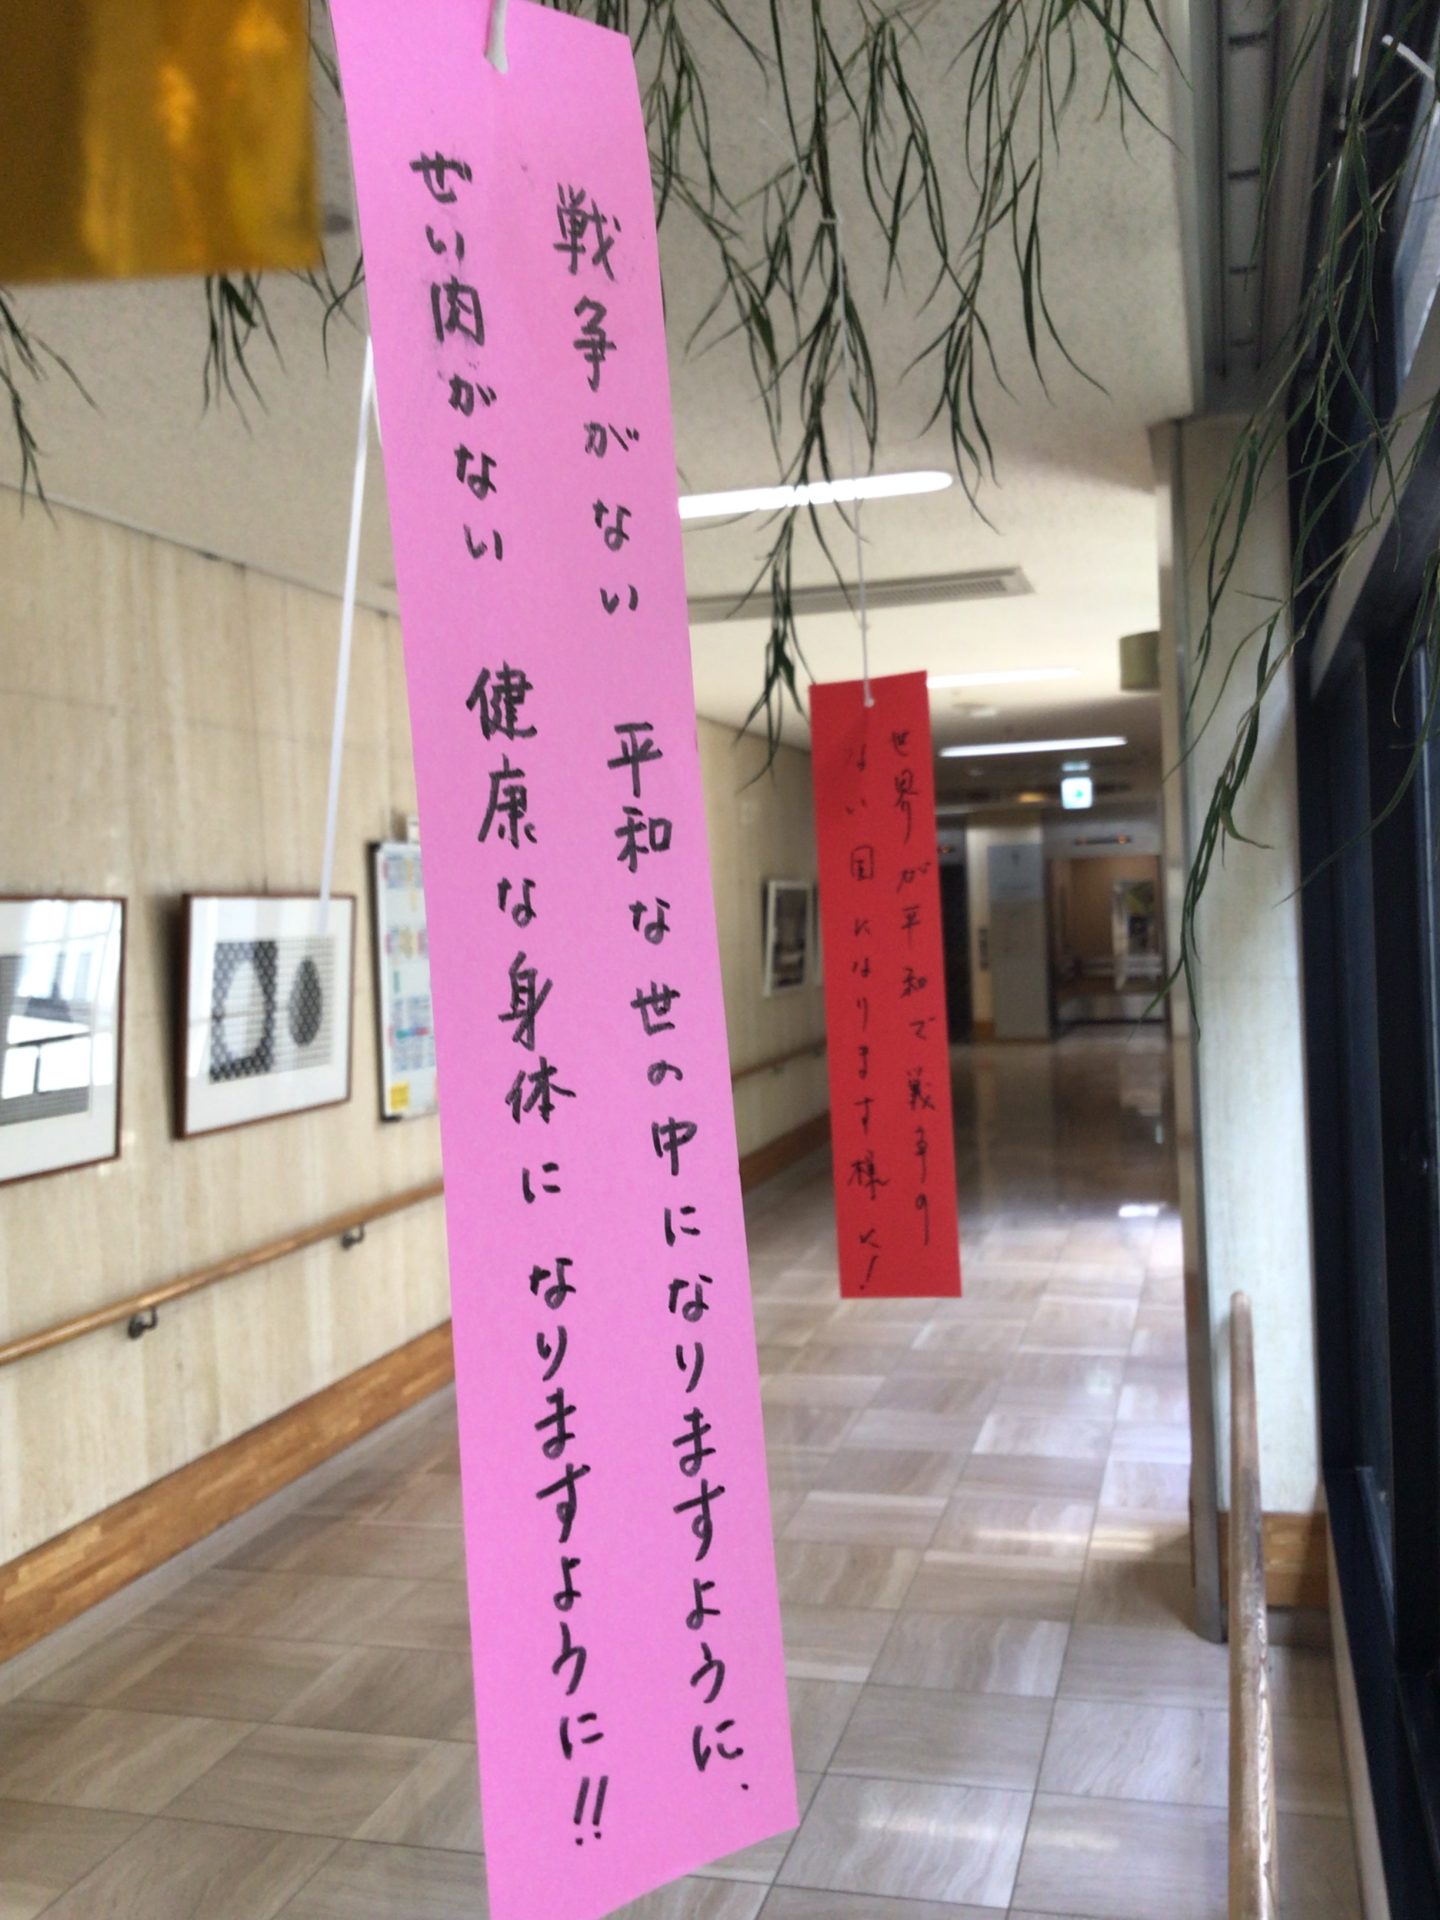 戦争がない 平和な世の中になりますように、
ぜい肉がない 健康な身体に なりますように!!
世界が平和で戦争の
ない国になります様に!